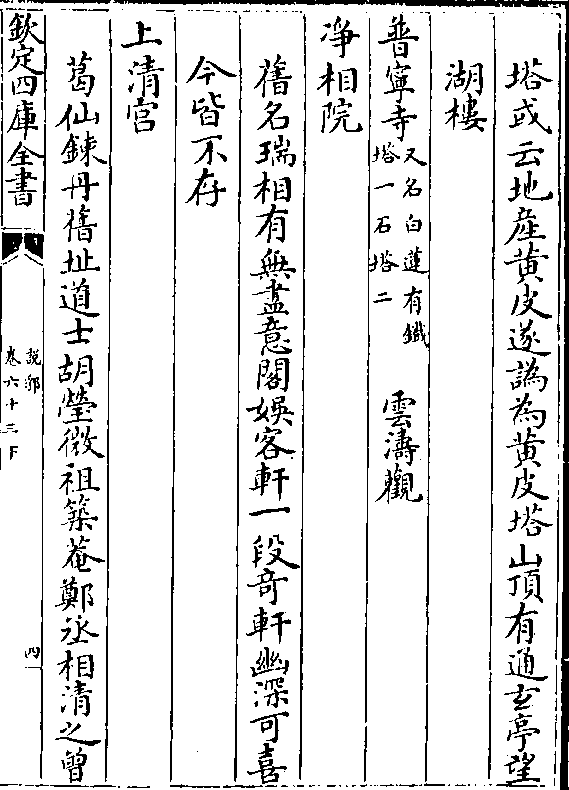 塔或云地産黄皮遂譌為黄皮塔山頂有通玄亭望
湖樓
普寧寺又名白蓮有鐵塔一石塔二　雲濤觀
凈相院
舊名瑞相有無盡意閣娛客軒一段奇軒幽深可喜
今皆不存
上清宫
葛仙鍊丹舊址道士胡瑩微祖築菴鄭丞相清之曽
欽定四庫全書
説郛
卷六十三下
四